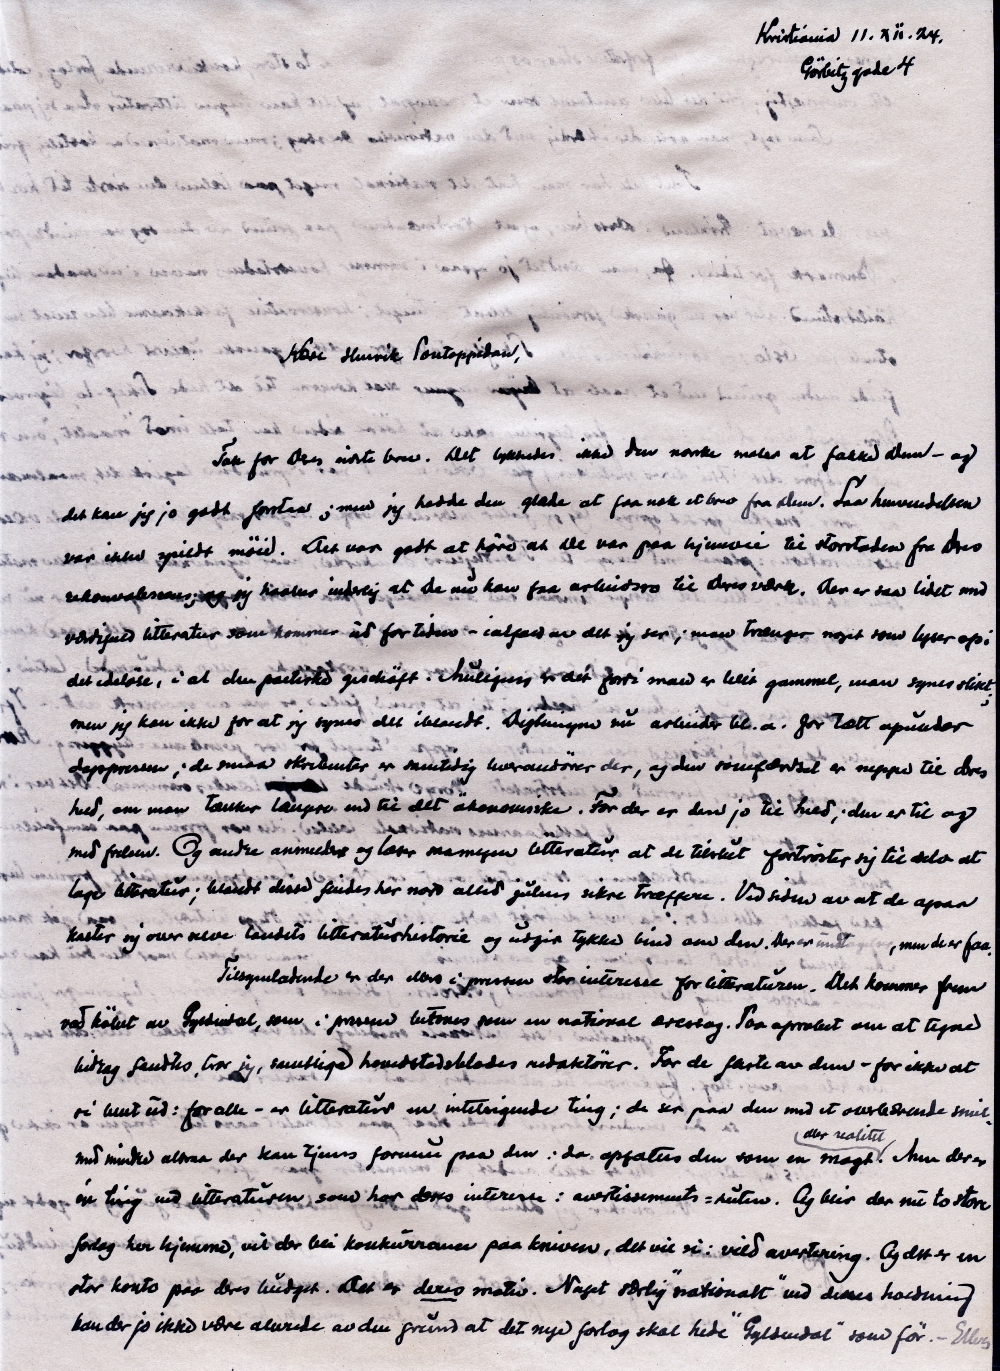 Kristiania 11. XII. 24.
Görbitzgade 4
Kære Henrik Pontoppidan,
Tak for Deres siste brev. Det lykkedes ikke den norske maler at fakke Dem – og
det kan jeg jo godt forstaa; men jeg hadde den glæde at faa nok et brev fra Dem. Saa henvendelsen
var ikke spildt möie. Det var godt at høre at De var paa hjemvei til storstaden fra Deres
rekonvalesens; og jeg haaber inderlig at De nu kan faa arbeidsro til Deres værk. Der er saa lidet med
værdifuld litteratur som kommer ud for tiden – ialfald av det jeg ser; man trænger noget som lyser op i
det ideløse, i al den poetiske geschäft. Muligens er det fordi man er blit gammel, man synes slikt;
men jeg kan ikke for at jeg synes det iblandt. Digtningen nu arbeider bl. a. for tætt opunder
dagspressen; de smaa skribenter er samtidig leverandörer der, og den samfærdsel er neppe til deres
hed, om man tænker længre end til det ökonomiske. For der er den jo til hed; den er til og
med frelsen. Og andre anmelder og læser saamegen litteratur at de tilslut fortrøster sig til selv at
lage litteratur; blandt disse findes her nord altid julens sikre træffere. Ved siden av at de ogsaa
kaster sig over selve landets litteraturhistorie og udgir tykke bind om den. Der er , men de er faa.
Tilsyneladende er der ellers i pressen stor interesse for litteraturen. Det kommer frem
ved köbet av Gyldendal, som i pressen betones som en national æressag. Paa opropet om at tegne
bidrag fandtes, tror jeg, samtlige hovedstadsblades redaktörer. For de fleste av dem – for ikke at
si bent ud: for alle – er litteratur en intetsigende ting; de ser paa den med et overbærende smil,
med mindre altsaa der kan tjenes formue paa den: da opfattes den som en magt (eller realitet). Men der er
én ting ved litteraturen som har deres interesse: avertissements=ruten. Og blir der nu to store
forlag her hjemme, vil der bli konkurrance paa kniven, det vil si: vild avertering. Og det er en
stor konto paa deres budget. Det er deres motiv. Noget særlig "nationalt" ved deres holdning
kan der jo ikke være allerede av den grund at det nye forlag skal hede "Gyldendal" som för. – Ellers